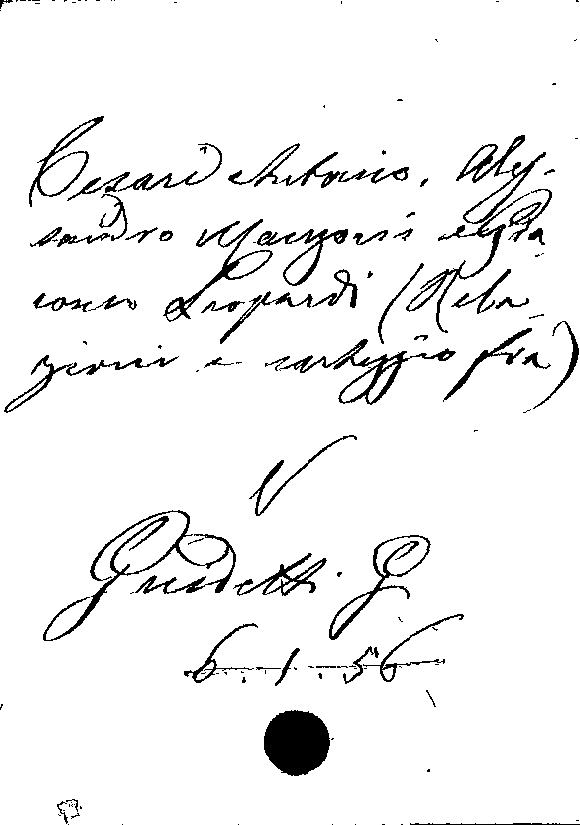 Cesari Antonio, Ales-
sandro Manzoni e Gia
como Leopardi (Rela-
zioni e carteggio fra)
V
Guidetti. G
6.1.56